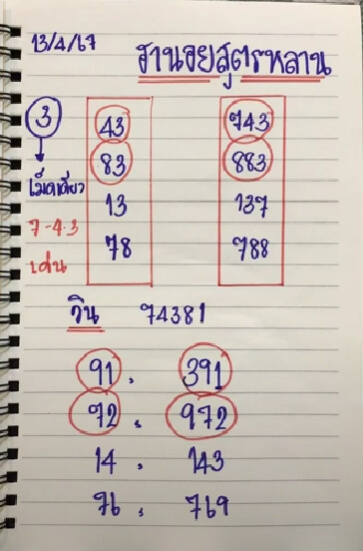 13/4/67
ฮานอยสูตรหลาน
3 43 743
83 883
เม็ดเดียว 13 137
7-4-3 78 788
เด่น
วิน 74381
91 . 391
92 . 972
14 . 143
76 , 769